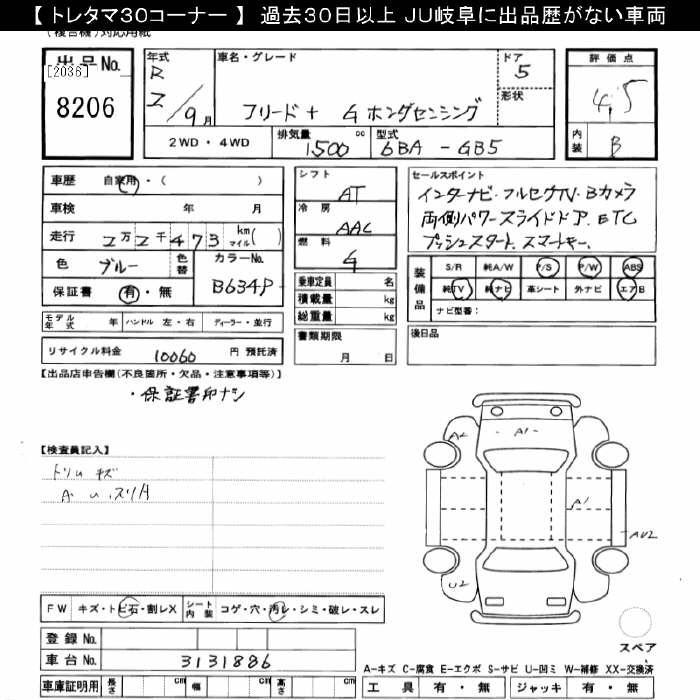 【 トレタマ30コーナー 】 過去30日以上 JU岐阜に出品歴がない車両
(複合機)対応用紙
出品No.
[2036]
8206
年式
R
2/9月
車名・グレード
フリード+ G ホンダセンシング
ドア
5
形状
評価点
4.5
内装
B
2WD・4WD
排気量
1500 cc
型式
6BA - GB5
車歴 自家用・( )
車検 年 月
走行 2万2千473 km マイル( )
色 ブルー 色替 カラーNo. B634P
保証書 有・無
モデル年式 年 ハンドル 左・右 ディーラー・並行
リサイクル料金 10060 円 預託済
シフト
AT
冷房
AAC
燃料
G
乗車定員 名
積載量 kg
総重量 kg
書類期限
月 日
セールスポイント
インターナビ・フルセグTV・Bカメラ
両側パワースライドドア. ETC
プッシュスタート. スマートキー.
装備品
S/R 純A/W P/S P/W ABS
純TV 純ナビ 革シート 外ナビ エアB
ナビ型番:
後日品
【出品店申告欄(不良箇所・欠品・注意事項等)】
・保証書印ナシ
【検査員記入】
トリム キズ
A U スリA
A2
A1
A1
AU2
U2
FW キズ・トビ石・割レX シート内装 コゲ・穴・汚レ・シミ・破レ・スレ
登録 No.
車台 No. 3131886
車庫証明用 長さ cm 幅 cm 高さ cm
スペア
A-キズ C-腐食 E-エクボ S-サビ U-凹ミ W-補修 XX-交換済
工具 有・無 ジャッキ 有・無